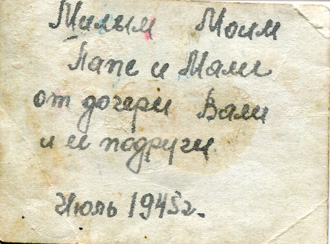 Милым Моим
Папе и Маме
от дочери Вали
и её подруги
Июль 1945г.